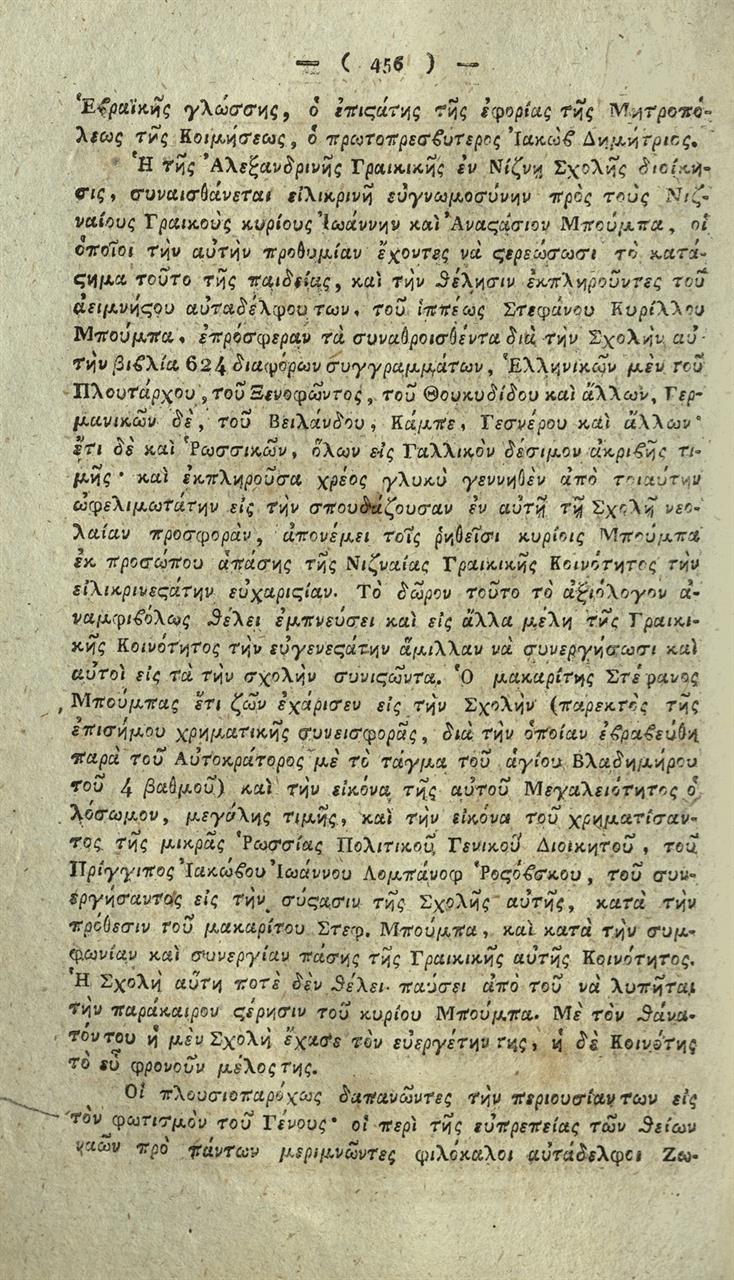 = ( 456 ) =
Ἑβραϊκῆς γλώσσης, ὁ ἐπιϛάτης τῆς ἐφορίας τῆς Μητροπό-
λεως τῆς Κοιμήσεως, ὁ πρωτοπρεσβύτερος Ἰακὼβ Δημήτριος.
Ἡ τῆς Ἀλεξανδρινῆς Γραικικῆς ἐν Νίζνῃ Σχολῆς διοίκη-
σις, συναισθάνεται εἰλικρινῆ εὐγνωμοσύνην πρὸς τοὺς Νιζ-
ναίους Γραικοὺς κυρίους Ἰωάννην καὶ Ἀναϛάσιον Μπούμπα, οἱ
ὁποῖοι τὴν αὐτὴν προθυμίαν ἔχοντες νὰ ϛερεώσωσι τὸ κατά-
ϛημα τοῦτο τῆς παιδείας, καὶ τὴν θέλησιν ἐκπληροῦντες τοῦ
ἀειμνήϛου αὐταδέλφου των, τοῦ ἱππέως Στεφάνου Κυρίλλου
Μπούμπα, ἐπρόσφεραν τὰ συναθροισθέντα διὰ τὴν Σχολὴν αὐ-
τὴν βιβλία 624 διαφόρων συγγραμμάτων, Ἑλληνικῶν μὲν τοῦ
Πλουτάρχου, τοῦ Ξενοφῶντος, τοῦ Θουκυδίδου καὶ ἄλλων, Γερ-
μανικῶν δὲ, τοῦ Βειλάνδου, Κάμπε, Γεσνέρου καὶ ἄλλων·
ἔτι δὲ καὶ Ῥωσσικῶν, ὅλων εἰς Γαλλικὸν δέσιμον ἀκριβῆς τι-
μῆς· καὶ ἐκπληροῦσα χρέος γλυκὺ γεννηθὲν ἀπὸ τοιαύτην
ὠφελιμωτάτην εἰς τὴν σπουδάζουσαν ἐν αὐτῇ τῇ Σχολῇ νεο-
λαίαν προσφορὰν, ἀπονέμει τοῖς ῥηθεῖσι κυρίοις Μπούμπα
ἐκ προσώπου ἁπάσης τῆς Νιζναίας Γραικικῆς Κοινότητος τὴν
εἰλικρινεϛάτην εὐχαριϛίαν. Τὸ δῶρον τοῦτο τὸ ἀξιόλογον ἀ-
ναμφιβόλως θέλει ἐμπνεύσει καὶ εἰς ἄλλα μέλη τῆς Γραικι-
κῆς Κοινότητος τὴν εὐγενεϛάτην ἅμιλλαν νὰ συνεργήσωσι καὶ
αὐτοὶ εἰς τὰ τὴν σχολὴν συνιϛῶντα. Ὁ μακαρίτης Στέφανος
Μπούμπας ἔτι ζῶν ἐχάρισεν εἰς τὴν Σχολὴν (παρεκτὸς τῆς
ἐπισήμου χρηματικῆς συνεισφορᾶς, διὰ τὴν ὁποίαν ἐβραβεύθη
παρὰ τοῦ Αὐτοκράτορος μὲ τὸ τάγμα τοῦ ἁγίου Βλαδημήρου
τοῦ 4 βαθμοῦ) καὶ τὴν εἰκόνα τῆς αὐτοῦ Μεγαλειότητος ὁ
λόσωμον, μεγάλης τιμῆς, καὶ τὴν εἰκόνα τοῦ χρηματίσαν-
τος τῆς μικρᾶς Ῥωσσίας Πολιτικοῦ Γενικοῦ Διοικητοῦ, τοῦ
Πρίγγιπος Ἰακώβου Ἰωάννου Λομπάνοφ Ῥοϛόβσκου, τοῦ συν-
εργήσαντος εἰς τὴν σύϛασιν τῆς Σχολῆς αὐτῆς, κατὰ τὴν
πρόθεσιν τοῦ μακαρίτου Στεφ. Μπούμπα, καὶ κατὰ τὴν συμ-
φωνίαν καὶ συνεργίαν πάσης τῆς Γραικικῆς αὐτῆς Κοινότητος.
Ἡ Σχολὴ αὕτη ποτὲ δὲν θέλει παύσει ἀπὸ τοῦ νὰ λυπῆται
τὴν παράκαιρον ϛέρησιν τοῦ κυρίου Μπούμπα. Μὲ τὸν θάνα-
τόν του ἡ μὲν Σχολὴ ἔχασε τὸν εὐεργέτην της, ἡ δὲ Κοινότης
τὸ εὖ φρονοῦν μέλος της.
Οἱ πλουσιοπαρόχως δαπανῶντες τὴν περιουσίαν των εἰς
τὸν φωτισμὸν τοῦ Γένους· οἱ περὶ τῆς εὐπρεπείας τῶν θείων
ναῶν πρὸ πάντων μεριμνῶντες φιλόκαλοι αὐτάδελφοι Ζω-